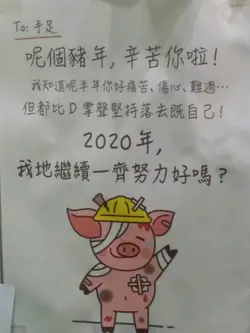 To: 手足
呢個豬年，辛苦你啦！
我知道呢半年你好痛苦、傷心、難過…
但都比D掌聲堅持落去既自己！
2020年，
我地繼續一齊努力好嗎？